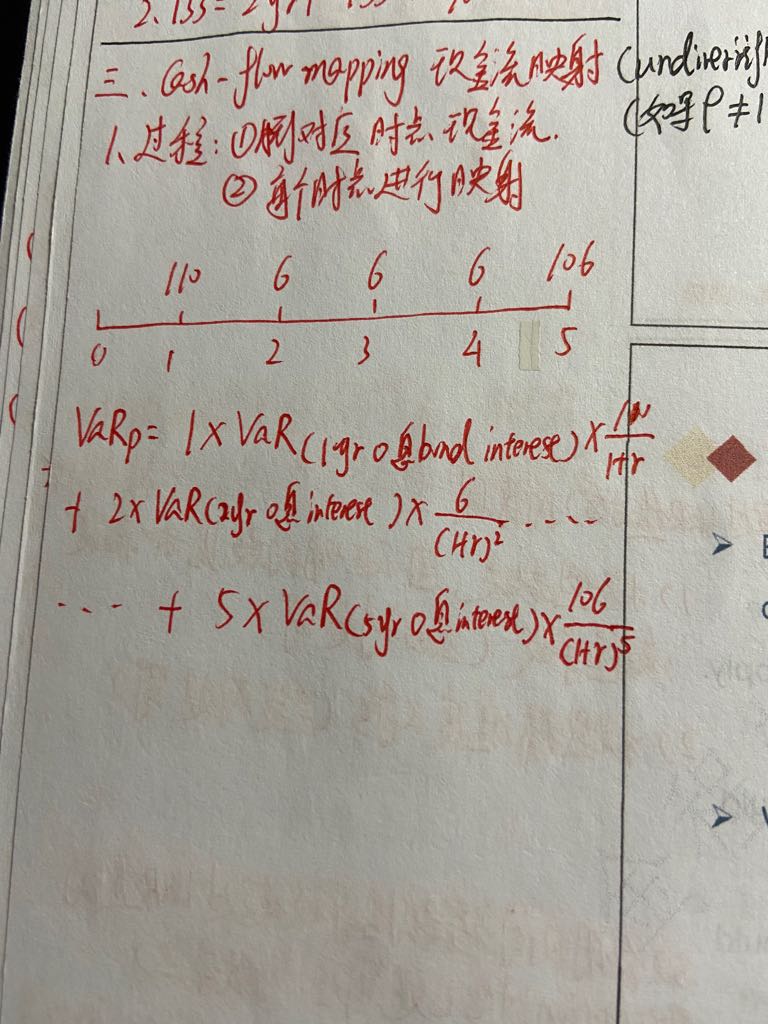 2. 155 = 2yr
三、Cash-flow mapping 现金流映射 (undiversif
(如果 ρ ≠ 1
1、过程: ① 对应时点现金流.
② 每个时点进行映射
110 6 6 6 106
0 1 2 3 4 5
VaRp = 1 × VaR (1yr 0息bond interese) × 110/1+r
+ 2 × VaR (2yr 0息interese) × 6/(1+r)² ····
···· + 5 × VaR (5yr 0息interese) × 106/(1+r)⁵